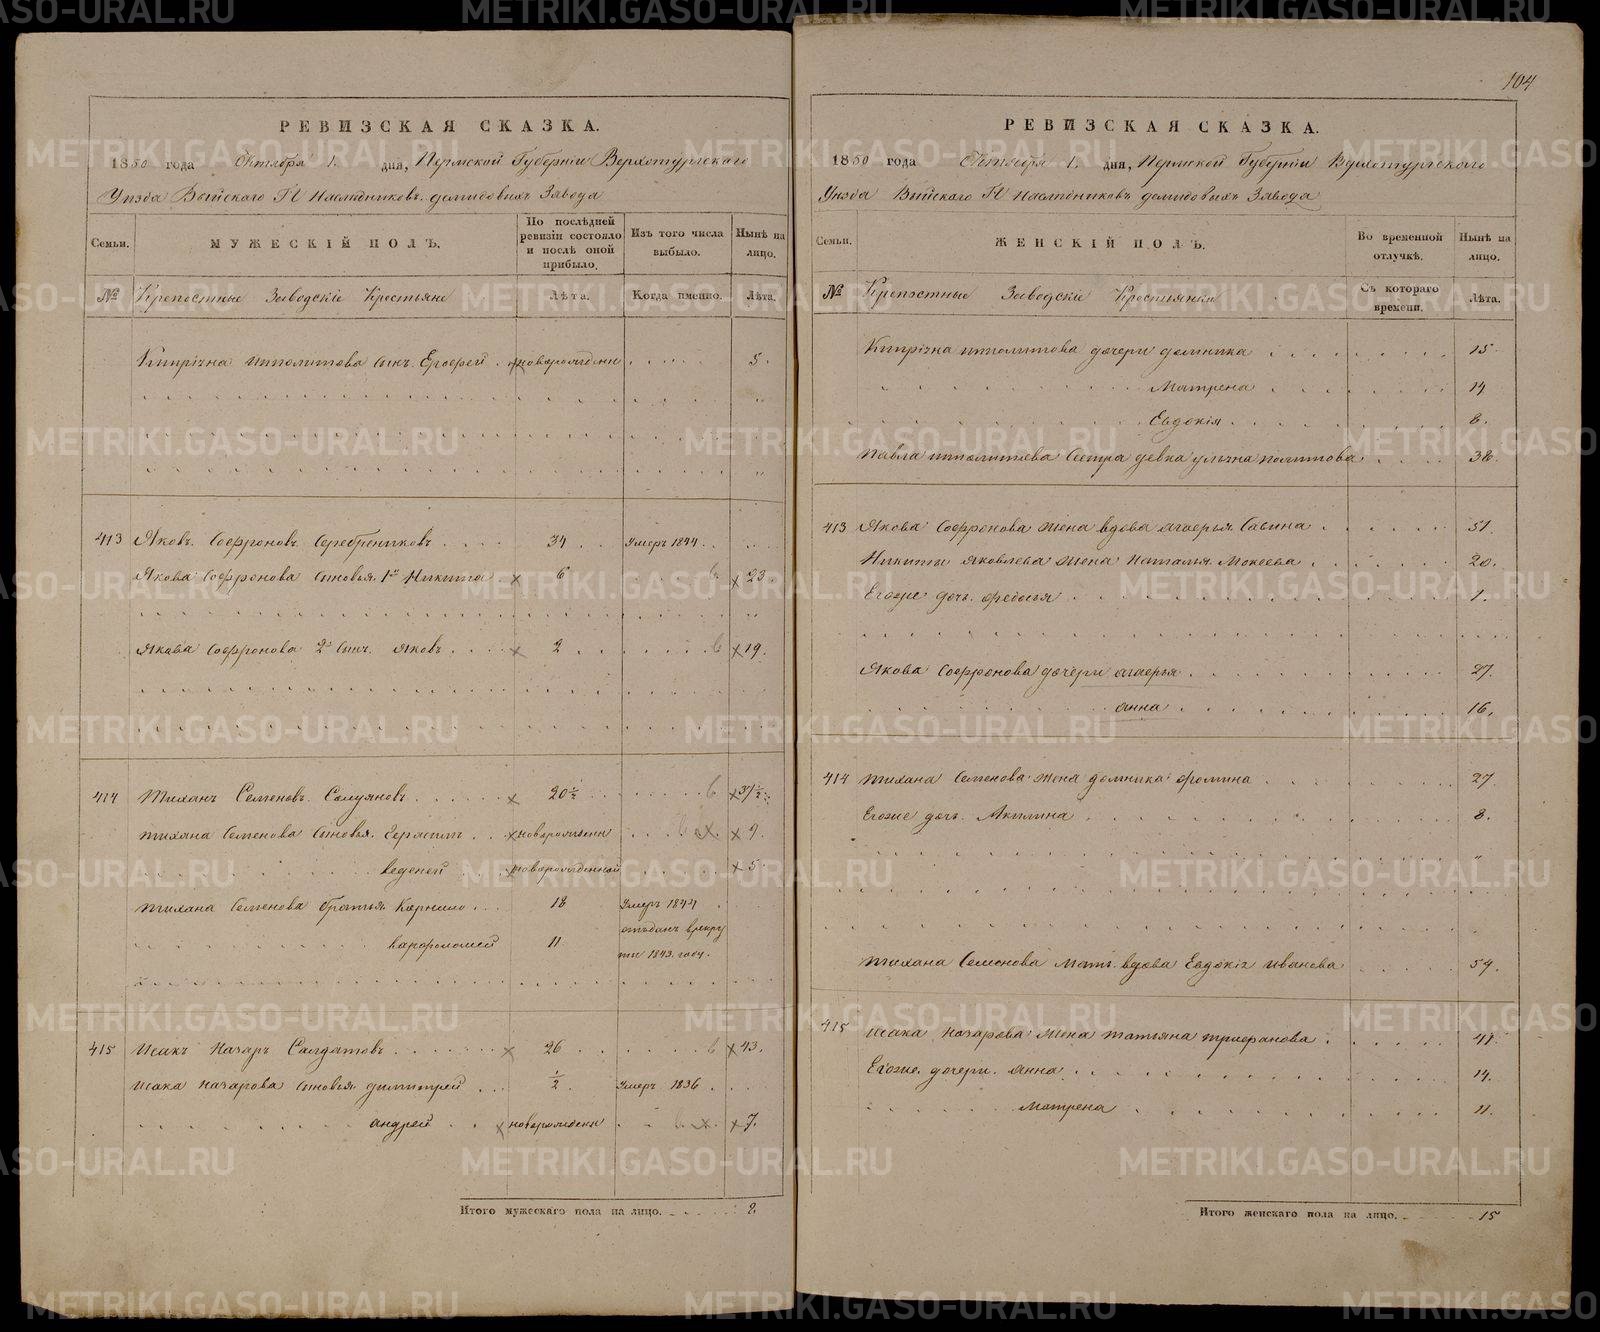 РЕВИЗСКАЯ СКАЗКА.
1850 года Октября 1. дня, Пермской Губерніи Верхотурскаго
Уѣзда Выйскаго ГГ Наслѣдниковъ демидовыхъ Завода
Семьи. МУЖЕСКІЙ ПОЛЪ. По послѣдней ревизіи состояло и послѣ оной прибыло. Изъ того числа выбыло. Нынѣ на лицо.
№ Крепостные Заводскіе Крестьяне Лѣта. Когда именно. Лѣта.
Кипріяна иполитова сынъ Ерофей новорожденн 5.
413 Яковъ Софроновъ Серебрениковъ 34 умеръ 1844
Якова Софронова сыновья 1й Никита 6 23
Якова Софронова 2й сынъ Яковъ 2 19.
414 Тиханъ Семеновъ Солуяновъ 20½ 37½
Тихана Семенова сыновья Герасимъ новорожденн 9.
веденей новорожденной 5
Тихана Семенова братья Карнило 18 умеръ 1844
варфоломей 11 отъданъ врекру
ты 1843. году.
415 Исакъ Назаръ Салдатовъ 26 43.
Исака назарова сыновья димитрей ½ умеръ 1836
андрей новорожденн 7.
Итого мужескаго пола на лицо. 8.
104
РЕВИЗСКАЯ СКАЗКА.
1850 года Октября 1. дня, Пермской Губерніи Верхотурскаго
Уѣзда Выйскаго ГГ Наслѣдниковъ демидовыхъ Завода
Семьи. ЖЕНСКІЙ ПОЛЪ. Во временной отлучкѣ. Нынѣ на лицо.
№ Крепостные Заводскіе Крестьянки Съ котораго времени. Лѣта.
Кипріяна иполитова дочери домника 15
Матрена 14
Евдокія 8.
Павла иполитова Сестра девка улиана политова 38.
413 Якова Софронова жена вдова агафья Савина 51.
Никиты Яковлева жена Наталья Мокеева 20.
Егоже дочь федосья 1.
Якова Софронова дочери агафья 27.
анна 16.
414 Тихана Семенова жена домника фомина 27
Егоже дочь Акилина 8.
Тихана Семенова мать вдова Евдокія иванова 54.
415 Исака назарова жена татьяна трифанова 41
Егоже дочери анна 14.
матрена 11.
Итого женскаго пола на лицо. 15
METRIKI.GASO-URAL.RU